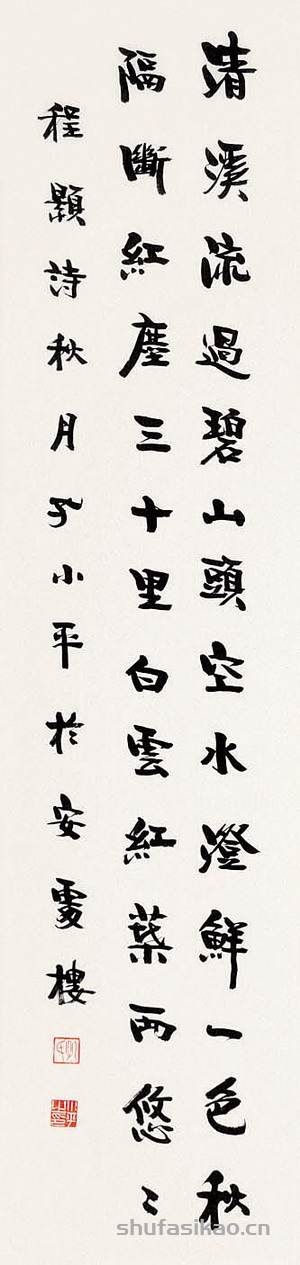 清溪流過碧山頭空水澄鮮一色秋
隔斷紅塵三十里白雲紅葉兩悠〻
程顥詩秋月孔小平於安處樓
shufasikao.cn